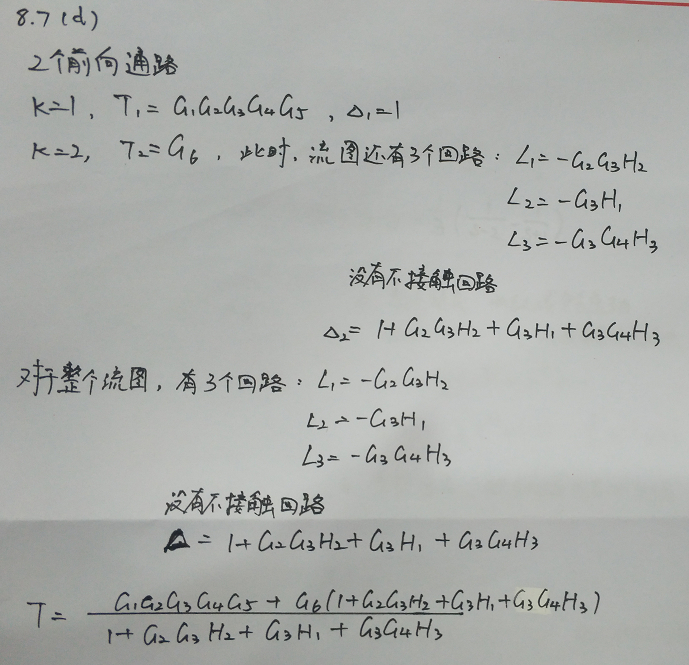 8.7(d)
2个前向通路
K=1, T₁=G₁G₂G₃G₄G₅, Δ₁=1
K=2, T₂=G₆, 此时,流图还有3个回路: L₁=-G₂G₃H₂
L₂=-G₃H₁
L₃=-G₃G₄H₃
没有不接触回路
Δ₂=1+G₂G₃H₂+G₃H₁+G₃G₄H₃
对于整个流图,有3个回路: L₁=-G₂G₃H₂
L₂=-G₃H₁
L₃=-G₃G₄H₃
没有不接触回路
Δ=1+G₂G₃H₂+G₃H₁+G₃G₄H₃
T= G₁G₂G₃G₄G₅+G₆(1+G₂G₃H₂+G₃H₁+G₃G₄H₃)
1+G₂G₃H₂+G₃H₁+G₃G₄H₃